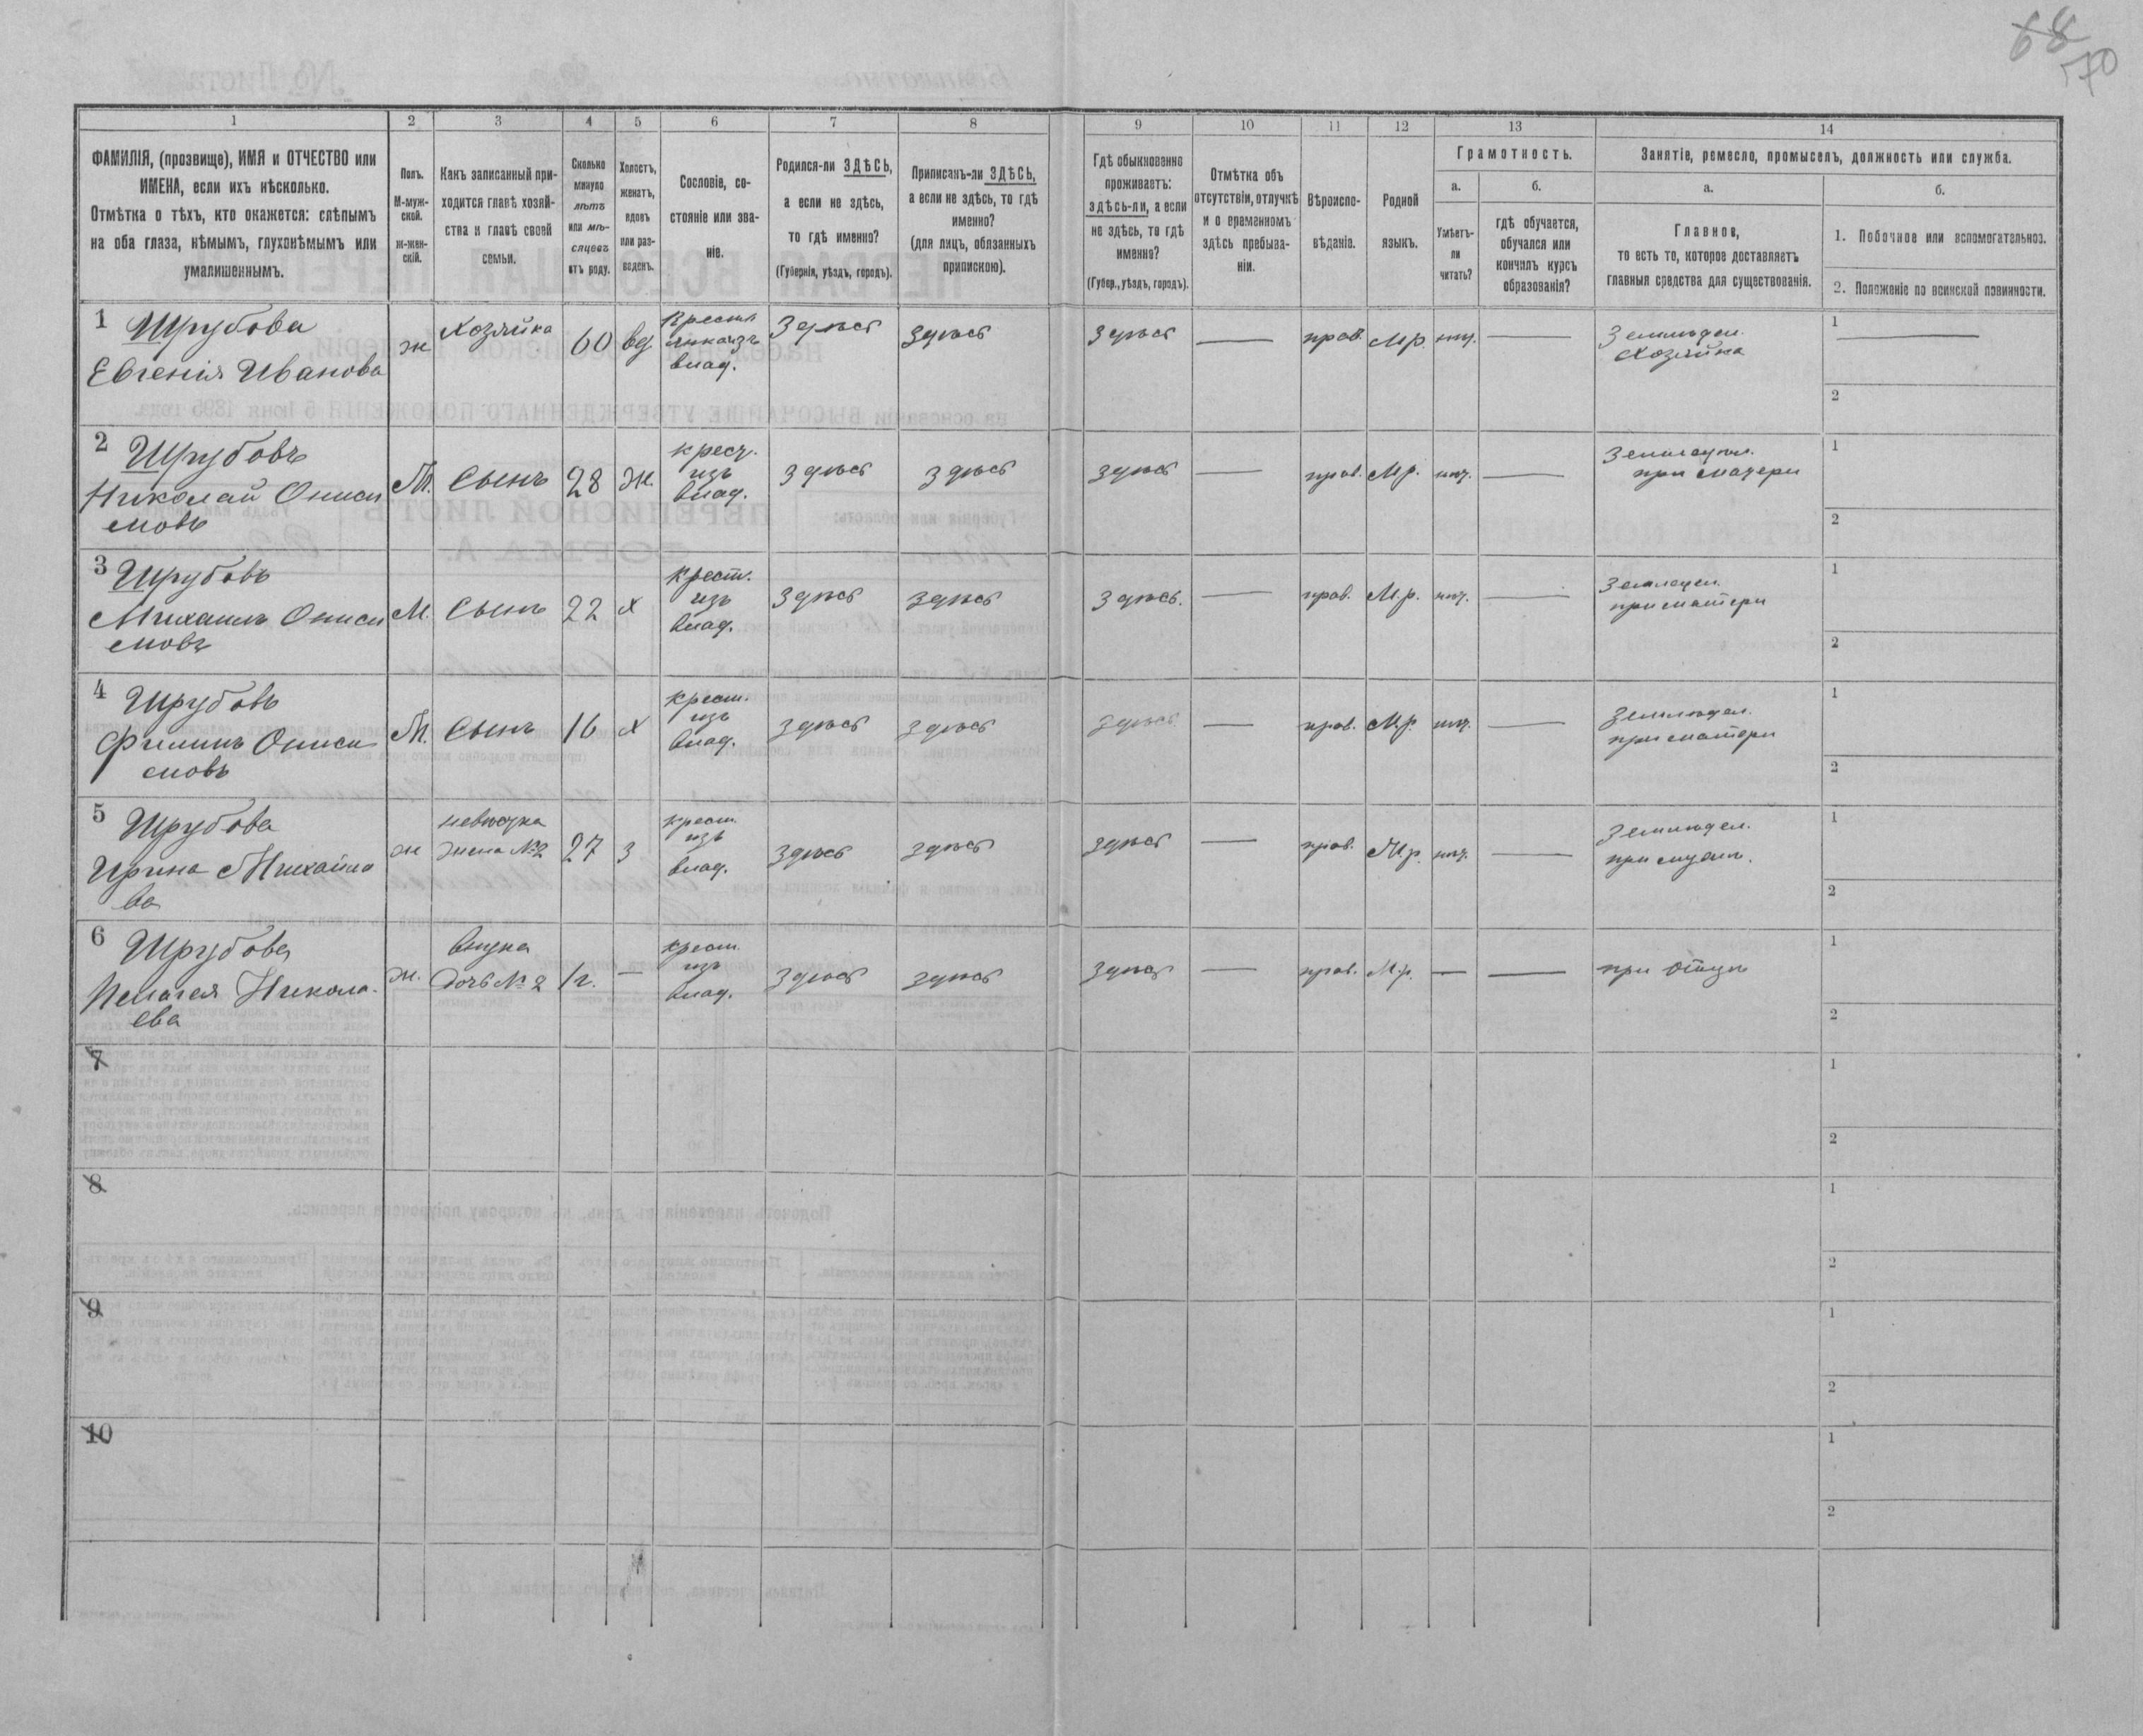 68
70
1
2
3
4
5
6
7
8
9
10
11
12
13
14
ФАМИЛІЯ, (прозвище), ИМЯ и ОТЧЕСТВО или
ИМЕНА, если ихъ нѣсколько.
Отмѣтка о тѣхъ, кто окажется: слѣпымъ
на оба глаза, нѣмымъ, глухонѣмымъ или
умалишеннымъ.
Полъ.
М-муж-
ской.
Ж-жен-
скій.
Какъ записанный при-
ходится главѣ хозяй-
ства и главѣ своей
семьи.
Сколько
минуло
лѣтъ
или мѣ-
сяцевъ
отъ роду.
Холостъ,
женатъ,
вдовъ
или раз-
веденъ.
Сословіе, со-
стояніе или зва-
ніе.
Родился-ли ЗДѢСЬ,
а если не здѣсь,
то гдѣ именно?
(Губернія, уѣздъ, городъ).
Приписанъ-ли ЗДѢСЬ,
а если не здѣсь, то гдѣ
именно?
(для лицъ, обязанныхъ
припискою).
Гдѣ обыкновенно
проживаетъ:
здѣсь-ли, а если
не здѣсь, то гдѣ
именно?
(Губер., уѣздъ, городъ).
Отмѣтка объ
отсутствіи, отлучкѣ
и о временномъ
здѣсь пребыва-
ніи.
Вѣроиспо-
вѣданіе.
Родной
языкъ.
Грамотность.
а.
Умѣетъ-
ли
читать?
б.
гдѣ обучается,
обучался или
кончилъ курсъ
образованія?
Занятіе, ремесло, промыселъ, должность или служба.
а.
Главное,
то есть то, которое доставляетъ
главныя средства для существованія.
б.
1. Побочное или вспомогательное.
2. Положеніе по воинской повинности.
1 Шрубова
Евгенія Иванова
ж
Хозяйка
60
вд
влад.
Здѣсь
здѣсь
здѣсь
—
прав.
М.р.
нѣт.
—
Земледѣл.
Хозяйка
1 —
2
2 Шрубовъ
Николай Ониси
мовъ
М.
Сынъ
28
ж.
крест.
изъ
влад.
здѣсь
здѣсь
здѣсь
—
прав.
М.р.
нѣт.
—
Земледѣл.
при матери
1
2
3 Шрубовъ
Михаилъ Ониси
мовъ
М.
Сынъ
22
х
крест.
изъ
влад.
здѣсь
здѣсь
здѣсь.
—
прав.
М.р.
нѣт.
—
Земледѣл.
при матери
1
2
4 Шрубовъ
Филипъ Ониси
мовъ
М.
Сынъ
16
х
крест.
изъ
влад.
здѣсь
здѣсь
здѣсь
—
прав.
М.р.
нѣт.
—
Земледѣл.
при матери
1
2
5 Шрубова
Ирина Михайло
ва
ж
невѣстка
жена №2
27
з
крест.
изъ
влад.
здѣсь
здѣсь
здѣсь
—
прав.
М.р.
нѣт.
—
Земледѣл.
при мужѣ.
1
2
6 Шрубова
Пелагея Никола-
ева
ж.
внука
дочь №2
1г.
—
крест.
изъ
влад.
здѣсь
здѣсь
здѣсь
—
прав.
М.р.
—
—
при отцѣ
1
2
7
1
2
8
1
2
9
1
2
10
1
2